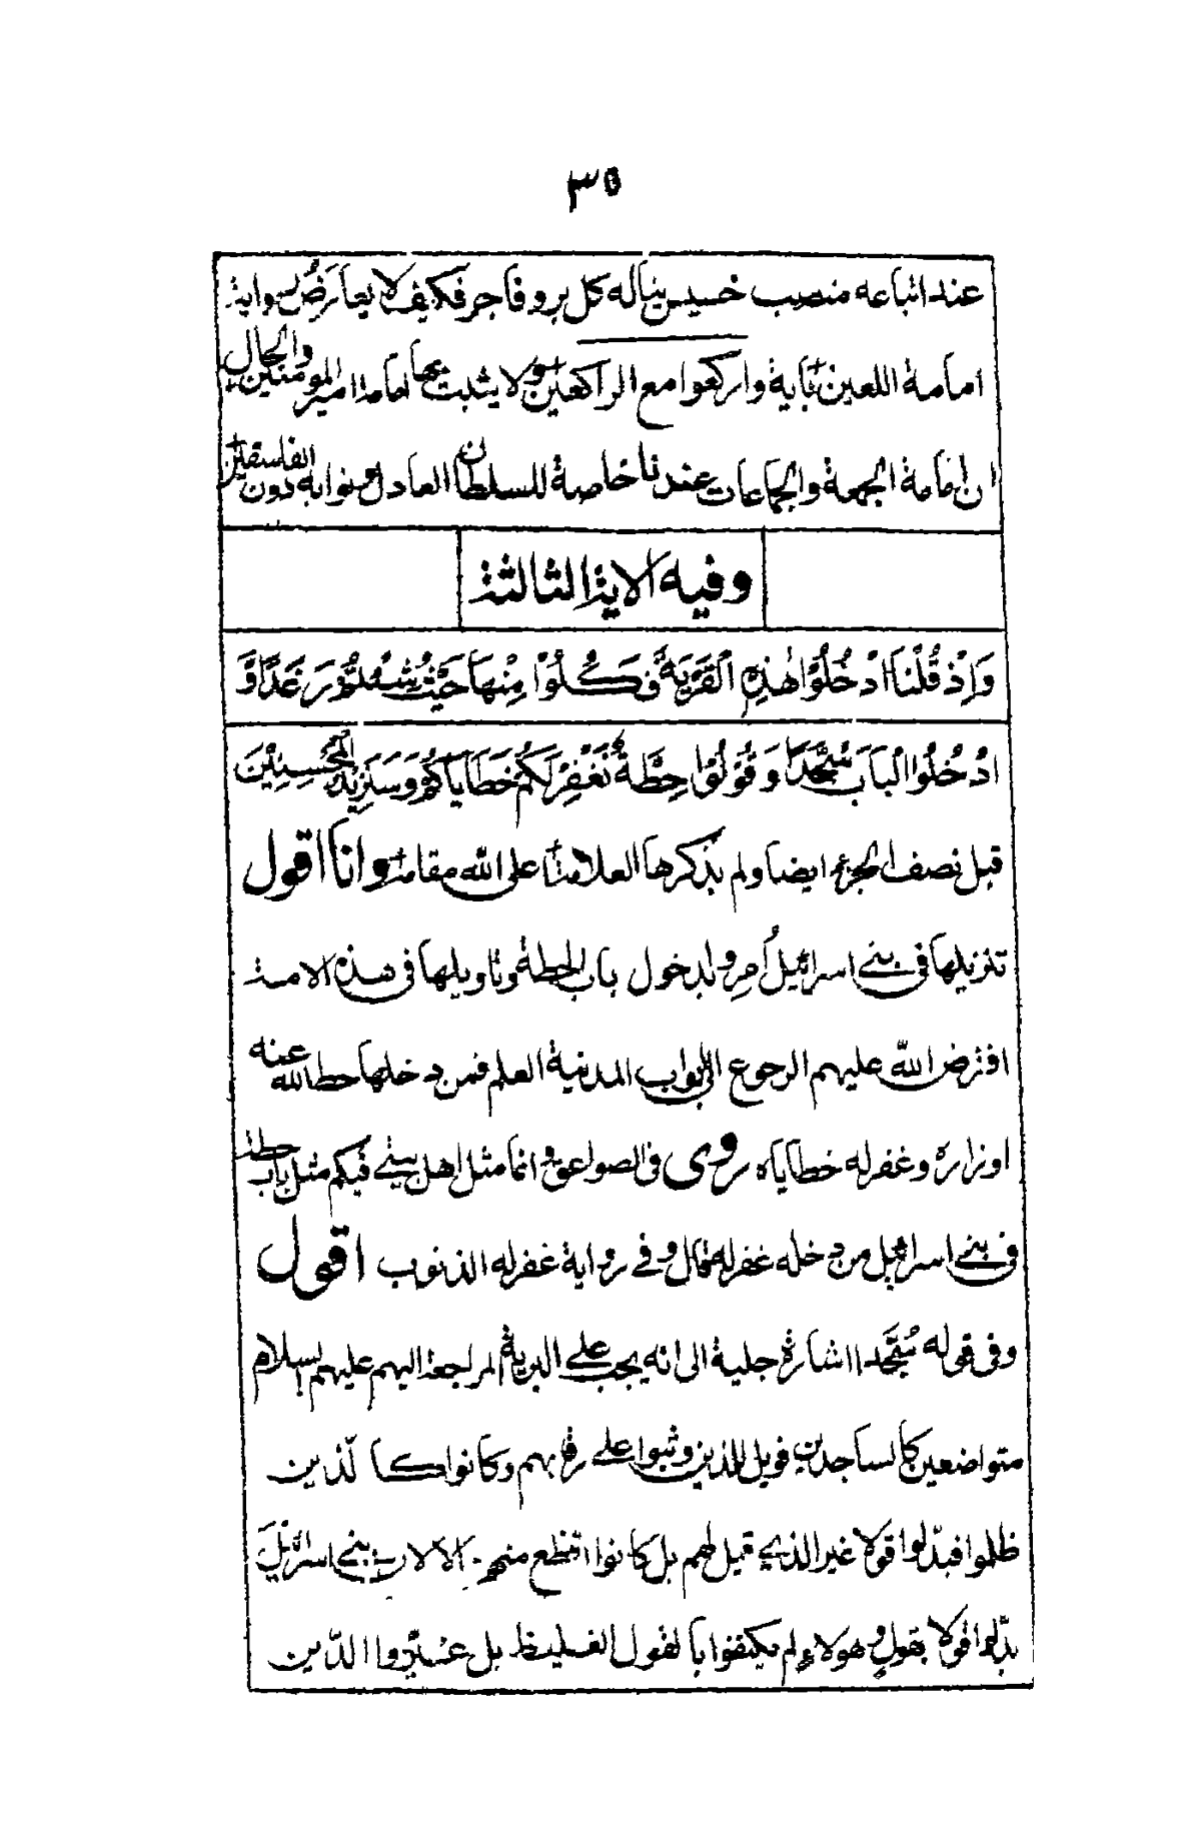 ٣٥
عند اتباعه منصب خسيس يناله كل بر وفاجر فكيف لا يعارض رواية
امامة اللعين بآية واركعوا مع الراكعين ولا يثبت بها امامة امير المومنين والحال
ان امامة الجمعة والجماعات عندنا خاصة للسلطان العادل ونوابه دون الفاسقين
وفيه الاية الثالثة
وَاِذْ قُلْنَا ادْخُلُوْا هٰذِهِ الْقَرْيَةَ فَكُلُوْا مِنْهَا حَيْثُ شِئْتُمْ رَغَدًا وَّ
ادْخُلُوا الْبَابَ سُجَّدًا وَقُوْلُوْا حِطَّةٌ نَغْفِرْ لَكُمْ خَطَايَاكُمْ وَسَنَزِيْدُ الْمُحْسِنِيْنَ
قبل نصف الجزء ايضا ولم يذكرها العلامة اعلى الله مقامه وانا اقول
تنزيلها فى بنے اسرائيل اُمِروا بدخول باب الحطة وتاويلها فى هذه الامة
افترض الله عليهم الرجوع الى ابواب المدنية العلم فمن دخلها حط الله عنه
اوزاره وغفر له خطاياه روى فى الصواعق وانما مثل اهل بيتے فيكم مثل باب حطة
فى بنے اسرائيل من دخله غفر له قال وفے رواية غفر له الذنوب اقول
وفى قوله سُجَّدا اشارة جلية الى انه يجب علے البرية المراجعة اليهم عليهم السلام
متواضعين كالساجدين فويل للذين وثبوا علے رقابهم وكانوا كالّذين
ظلموا فبدّلوا قولا غير الذي قيل لهم بل كانوا افظع منهم لان بنے اسرائيلَ
بدّلوا قولا بقول وهولاء لم يكتفوا بالقول الغليظ بل الّذين